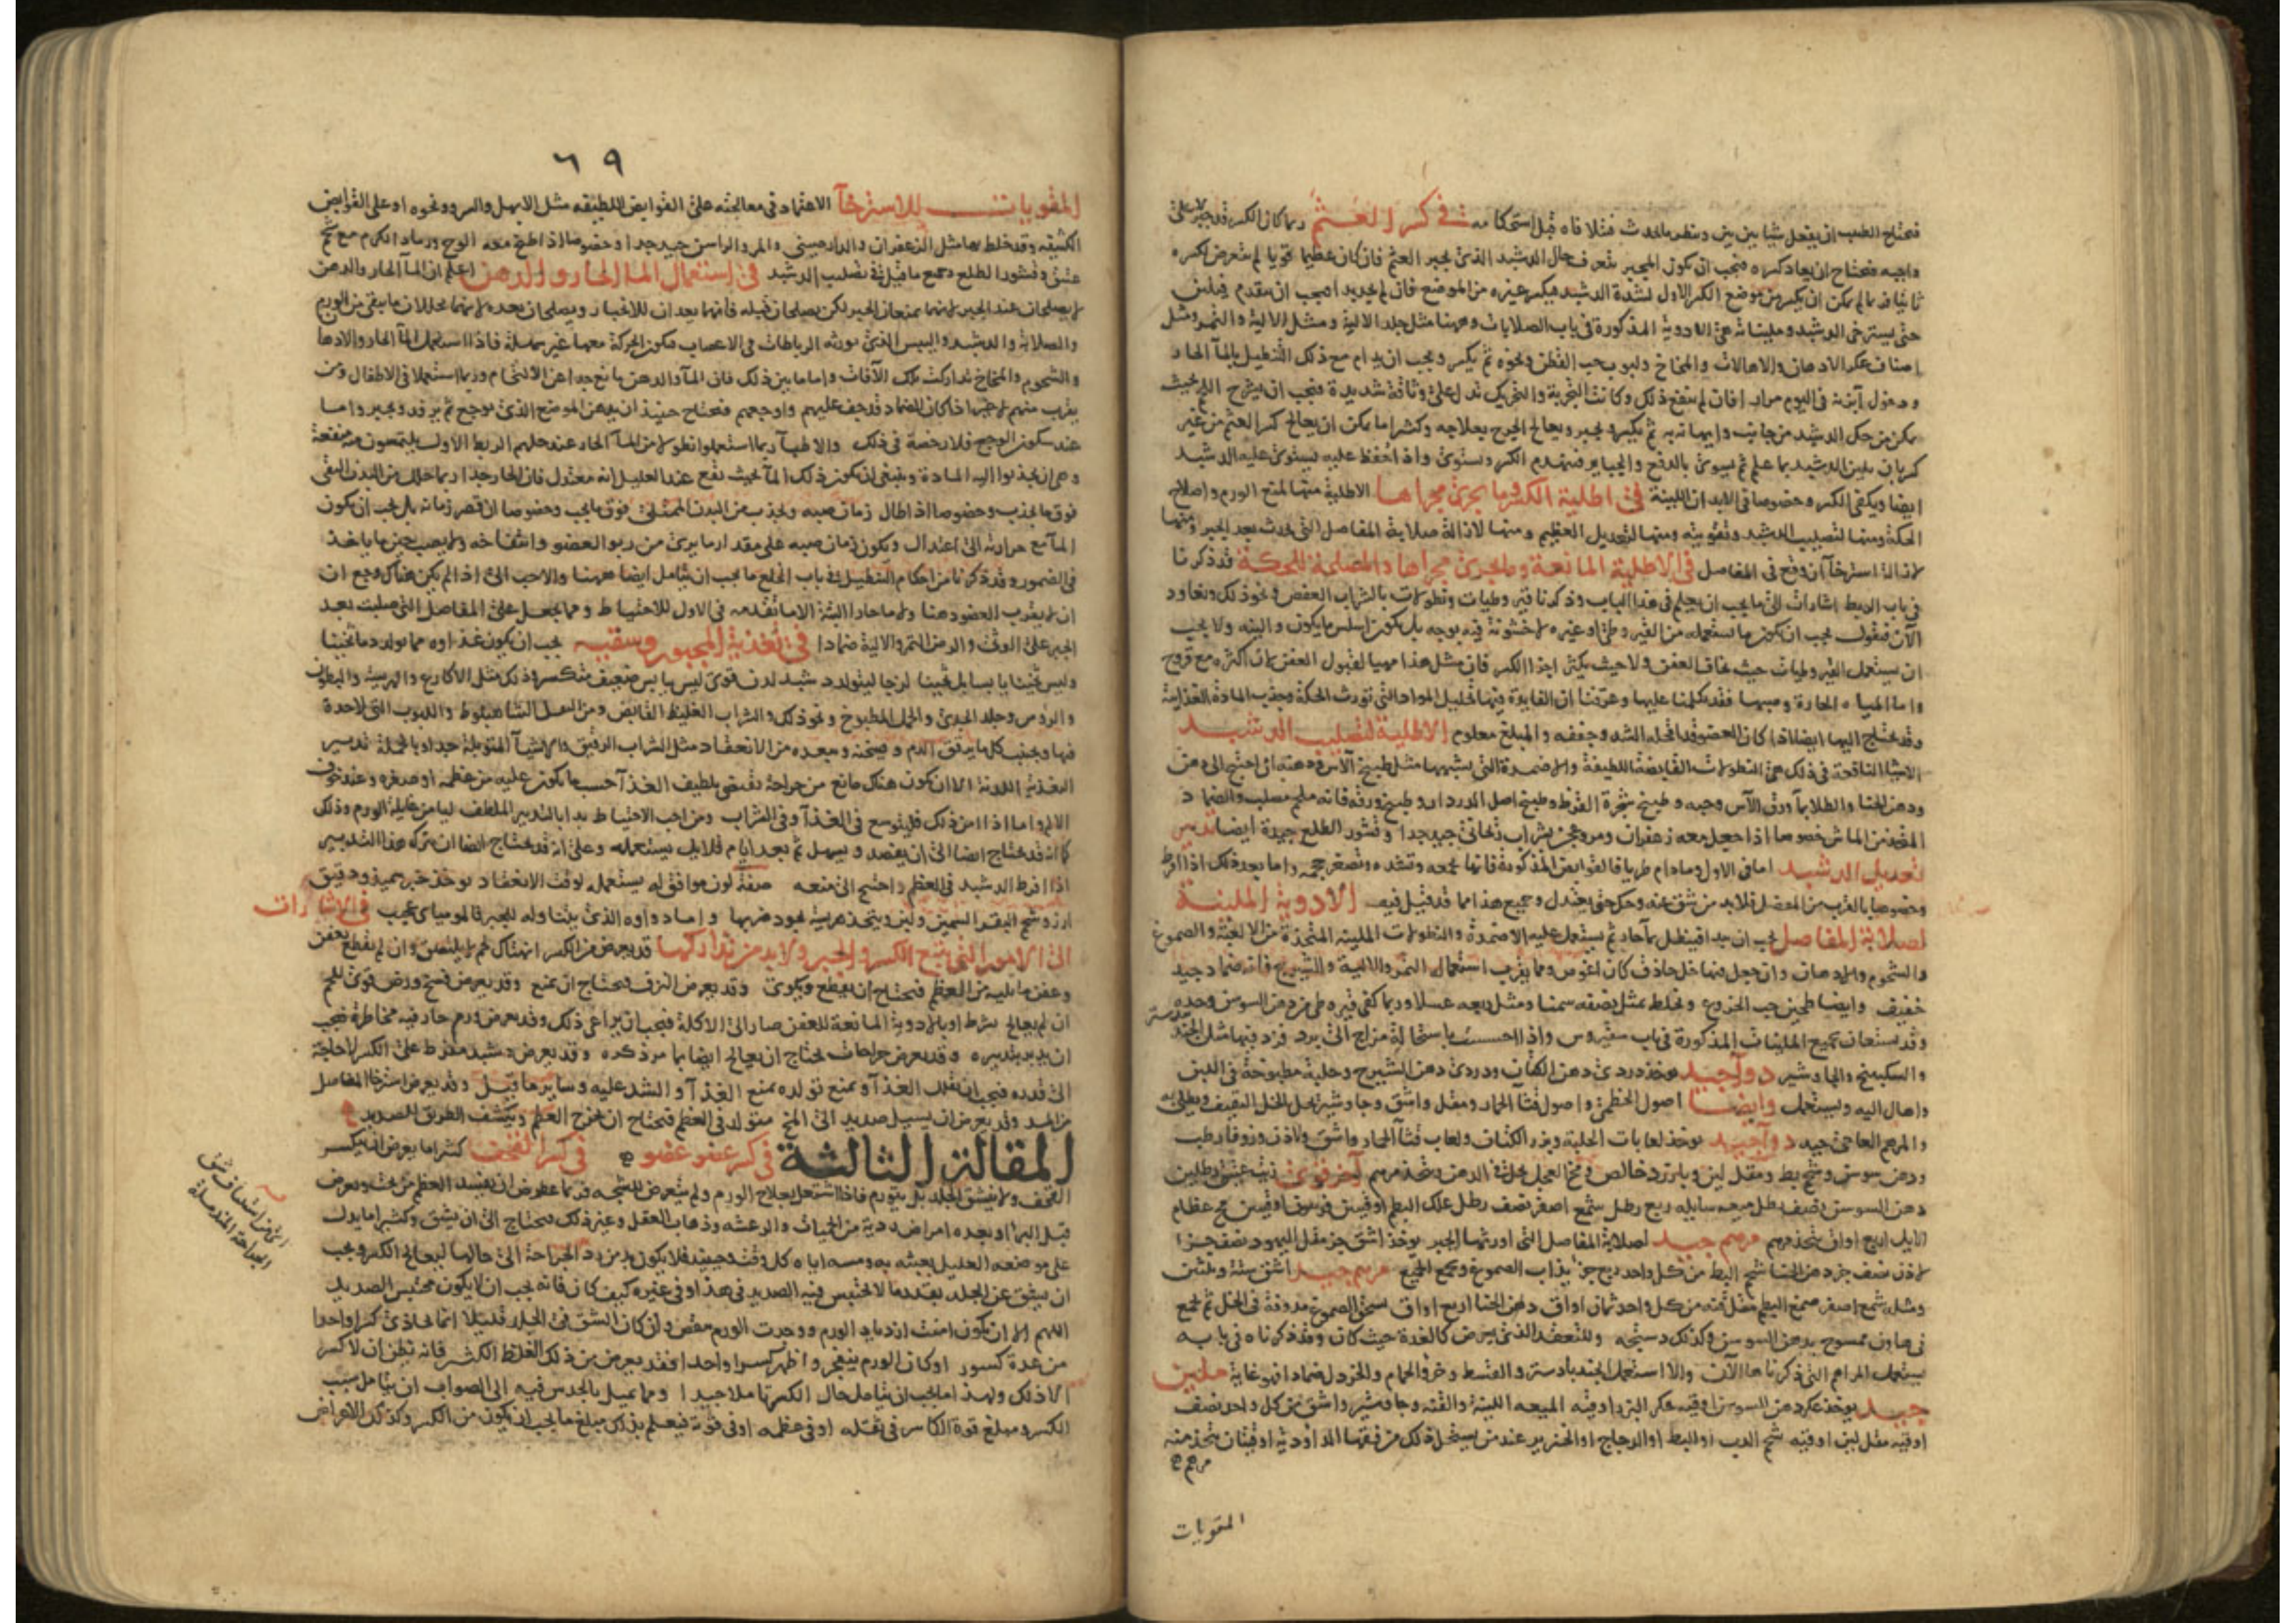 فيحتاج الطبيب ان يفعل شيا بين بين وينظر ما يحدث فيتلافاه قبل استحكامه في كسر العثم وربما كان الكسر قد جبر على
واجبه فيحتاج ان يعاد كسره فيجب ان يكون المجبر يتعرف حال الدشبد الذي يجبر العثم فان كان عظيما قويا لم يتعرض لكسره
ثانيا فربما لم يمكن ان يكسر من موضع الكسر الاول لشدة الدشبد فيكسر غيره من الموضع فان لم يجد بدا فيجب ان يقدم فيلين
حتى يسترخي الدشبد وملينات هي الادوية المذكورة في باب الصلابات وههنا مثل جلد الالية ومثل الالية والتمر ومثل
اصناف عكر الادهان والاهالات والمخاخ ولبوب حب القطن ونحوه ثم يكسر ويجب ان يدام مع ذلك التنطيل بالماء الحار
ودخول آبزنه في اليوم مرارا فان لم ينفع ذلك وكانت التجربة والتحريك تدل على وثاقة شديدة فيجب ان يشرح اللحم بحيث
يمكن من حك الدشبد من جانب وايهانه به ثم يكسر ويجبر ويعالج الجرح بعلاجه وكثيرا ما يمكن ان يعالج كسر العثم من غير
كسر بان يلين الدشبد بما علم ثم يسوى بالدفع والجباير فيتهندم الكسر ويستوي واذا حفظ عليه يستوي عليه الدشبد
ايضا ويكفي الكسر وخصوصا في الابدان اللينة في اطلية الكسر وما يجري مجراها الاطلية منها لمنع الورم واصلاح
الحكة ومنها لتصليب الدشبد وتقويته ومنها لتعديل العظيم ومنها لازالة صلابة المفاصل التي تحدث بعد الجبر ومنها
لازالة استرخاء ان وقع في المفاصل في الاطلية المانعة وما يجري مجراها والمصلحة للحكة قد ذكرنا
في باب الربط اشارات الى ما يجب ان يعلم في هذا الباب وذكرنا قيروطيات ونطولات بالشراب العفص ونحو ذلك ونعاود
الآن فنقول يجب ان يكون ما يستعمله من القيروطي او غيره لا خشونة فيه بوجه بل يكون اسلس ما يكون والينه ولا يجب
ان يستعمل القيروطيات حيث يخاف العفن ولا حيث يكثر اجزا الكسر فان مثل هذا مهيا لقبول العفن لان اكثره مع قروح
واما المياه الحارة وصبها فقد تكلمنا عليها وعرفنا ان الفايدة فيها تحليل المواد التي تورث الحكة وجذب المادة الغذايية
وقد يحتاج اليها ايضا اذا كان العضو قد اقحله الشد وجففه والمبلغ معلوم الاطلية لتصليب الدشبد
الاشيا النافعة في ذلك هي النطولات القابضة اللطيفة والاضمدة التي يشبهها مثل طبيخ الآس ودهنه ان احتيج الى دهن
ودهن الحنا والطلا بماء ورق الآس وحبه وطبيخ شجرة القرظ وطبيخ اصل الدردار وطبيخ ورقه فانه ملحم مصلب والضماد
المتخذ من الماش خصوصا اذا جعل معه زعفران ومر وعجن بشراب ريحاني جيد جدا وقشور الطلع جيدة ايضا تدبير
تعديل الدشبد اما في الاول وما دام طريا فالقوابض المذكورة فانها تجمعه وتشده وتصغر حجمه واما بعد ذلك اذا افرط
وخصوصا بالقرب من المفصل فلا بد من شق عنه وحكه حتى يعتدل وجميع هذا مما قد قيل فيه الادوية الملينة
لصلابة المفاصل يجب ان يبدا فينطل بماء حار ثم يستعمل عليه الاضمدة والنطولات الملينة المتخذة من الالعبة والصموغ
والشحوم والادهان وان جعل فيها خل حاذق كان اغوص ومما يقرب استعمال التمر والالية والشيرج فانه ضماد جيد
خفيف وايضا طحين حب الخروع ونخلط بمثل نصفه سمنا ومثل ربعه عسلا وربما كفى قيروطي من دهن السوسن وحده
وقد يستعان بجميع الملينات المذكورة في باب سقيروس واذا احسست باستحالة مزاج الى برد فزد فيها مثل الجند
والسكبينج والجاوشير دواء جيد يوخذ دردي دهن الكتان ودردي دهن الشيرج وحلبة مطبوخة في اللبن
واهال اليه ويستعمل وايضا اصول الخطمي واصول قثاء الحمار ومقل واشق وجاوشير يحل الخل الثقيف ويطلى به
والمرهم العاجي جيد دواء جيد يوخذ لعابات الحلبة وبزر الكتان ولعاب قثاء الحمار واشق ولاذن وزوفا رطب
ودهن سوسن وشحم بط ومقل لين وبارزد خالص ومخ العجل يحل في الدهن ويتخذ مرهم آخر قوي زيت عتيق رطلين
دهن السوسن نصف رطل ميعه سايله ربع رطل شمع اصفر نصف رطل علك البطم اوقيتين فربيون اوقيتين مخ عظام
الايل اربع اواق يتخذ مرهم مرهم جيد لصلابة المفاصل التي اورثها الجبر يوخذ اشق جز مقل اليهود نصف جزا
لاذن نصف جز دهن الحنا شحم البط من كل واحد ربع جز يذاب الصموغ ويجمع الجميع مرهم جيد اشق ستة وثلثين
ومثله شمع اصفر صمغ البطم مقل قنه من كل واحد ثمان اواق دهن الحنا اربع اواق يسحق الصموغ مدوفة في الخل ثم يجمع
في هاون ممسوح بدهن السوسن وكذلك دستجه وللتعقد الذي يعرض كالغدة حيث كان وقد ذكرناه في بابه
يستعمل المراهم التي ذكرناها الآن والا استعمل الجندبادستر والقسط وخرؤ الحمام والخردل ضمادا فهو غاية ملين
جيد يوخذ عكر دهن السوسن اوقيه عكر البزر اوقيه الميعه اللبنى والقنه وجاوشير واشق من كل واحد نصف
اوقيه مقل لين اوقيه شحم الدب او البط او الدجاج او الخنزير عند من يستحل ذلك من فقها الداودية اوقيتان يتخذ منه
مرهم
المقويات
٦٩
المقويات للاسترخآ الاعتماد في معالجته على القوابض اللطيفه مثل الابهل والسرو ونحوه او على القوابض
الكثيفه وقد خلط بها مثل الزعفران والدارصيني والمر والراسن جيد جدا وخصوصا اذا طبخ معه الوج ورماد الكرم مع شحم
عتيق وقشور الطلع وجميع ما قيل في تصليب الدشبد في استعمال الما الحار والدهن اعلم ان الماء الحار والدهن
لا يصلحان عند الجبر لانهما يمنعان الجبر لكن يصلحان قبله فانهما يعدان للانجبار ويصلحان بعده لانهما يحللان ما يبقى من الورم
والصلابة والدشبد واليبس الذي يورثه الرباطات في الاعصاب فتكون الحركة معها غير سهلة فاذا استعمل الماء الحار والادهان
والشحوم والمخاخ تداركت تلك الآفات واما ما بين ذلك فان الماء والدهن مانع جدا عن الالتحام وربما استعملا في الاطفال ومن
يقرب منهم اذا كان الضماد قد جف عليهم واوجعهم فيحتاج حينئذ ان يدهن الموضع الذي يوجع ثم يرفد ويجبر واما
عند سكون الوجع فلا رخصة في ذلك والاطباء ربما استعملوا نطولا من الماء الحار عند حلهم الربط الاول يلتمسون منه منفعة
وهي ان يجذبوا اليه المادة وينبغي ان يكون ذلك الماء بحيث يقع عند العليل انه معتدل فان الحار جدا ربما حلل من البدن النقي
فوق ما يجذب وخصوصا اذا طال زمان صبه ويجذب من البدن الممتلئ فوق ما يجب وخصوصا ان قصر زمانه بل يجب ان يكون
الماء مع حرارته الى اعتدال ويكون زمان صبه على مقدار ما يرى من ربو العضو وانتفاخه ولا يصب حين ما ياخذ
في الضمور وقد ذكرنا من احكام التنطيل في باب الخلع ما يجب ان يتامل ايضا ههنا والاحب الى اذا لم يكن هناك وجع ان
لا يقرب العضو دهنا ولا ماء حارا البتة الا ما تقدمه في الاول للاحتياط ومما يجعل على المفاصل التي صلبت بعد
الجبر على الوثي والرض التمر والالية ضمادا في تغذية المجبور وسقيه يجب ان يكون غذاوه مما يولد دما ثخينا
وليس ثخينا يابسا بل ثخينا لزجا ليتولد دشبد لدن قوي ليس يابس ضعيف متكسر وذلك مثل الاكارع والهريسة والبطون
والرؤس وجلد الجدي والحمل المطبوخ ونحو ذلك والشراب الغليظ القابض ومن البقل الشاهبلوط واللبوب التي لا حدة
فيها ويجتنب كلما يرقق الدم ويسخنه ويبعده من الانعقاد مثل الشراب الرقيق والاشياء المتوبلة جدا وبالجملة تدبيره
التغذية اللدنة الا ان يكون هناك مانع من جراحة تقتضي تلطيف الغذاء حسب ما يكون عليه من عظمه او صغره وعند خوف
الالم واما اذا امن ذلك فليتوسع في الغذاء وفي الشراب ومن احب الاحتياط بدا بالتدبير الملطف ليامن غايلة الورم وذلك
كما انه قد يحتاج ايضا الى ان يفصد ويسهل ثم بعد ايام قلايل يستعمله وعلى انه قد يحتاج ايضا ان يترك هذا التدبير
اذا افرط الدشبد في العظم واحتيج الى منعه صفة لون موافق له يستعمله لوقت الانعقاد يوخذ خبز سميذ ودقيق
ارز وشحم البقر السمين ولبن ويتخذ هريسة يجود ضربها واما دواوه الذي يتناوله للجبر فالموميا عجيب في الاشارات
الى الامور التي تتبع الكسر والجبر ولا بد من تداركها قد يعرض من الكسر انهتاك لحم لا يلتصق وان لم يقطع يعفن
وعفن ما يليه من العظم فيحتاج ان يقطع ويكوى وقد يعرض النزف فيحتاج ان يمنع وقد يعرض فسخ ورض قوي للحم
ان لم يعالج بشرط او بالادوية المانعة للعفن صار الى الاكلة فيجب ان يراعى ذلك وقد يعرض ورم حار فيه مخاطرة فيجب
ان يدبر بتدبيره وقد يعرض جراحات يحتاج ان يعالج ايضا بما مر ذكره وقد يعرض دشبد مفرط على الكسر لا حاجة
الى قدره فيجب ان يقلل الغذاء ويمنع تولده بمنع الغذاء والشد عليه وساير ما قيل وقد يعرض استرخا المفاصل
من المد وقد يعرض ان يسيل صديد الى المخ متولد في العظم فيحتاج ان يخرج العظم ويكشف الطريق للصديد
المقالة الثالثة في كسر عضو عضو في كسر القحف كثيرا ما يعرض ان ينكسر
القحف ولا ينشق الجلد بل يتورم فاذا اشتغل بعلاج الورم ولم يتعرض للشجه فربما عرض ان يفسد العظم من تحت ويعرض
قبل البرا او بعده امراض ردية من الحميات والرعشه وذهاب العقل وغير ذلك فيحتاج الى ان يشق وكثيرا ما يدل
على موضعه العليل بعبثه به ومسه اياه كل وقت وحينئذ فلا يكون بد من رد الجراحة الى حالها ليعالج الكسر ويجب
ان يشق عن الجلد بقدر ما لا يحتبس فيه الصديد في هذا وفي غيره كيف كان فانه يجب ان لا يكون محتبس الصديد
اللهم الا ان يكون امنت ازدياد الورم ووجدت الورم مقض وان كان الشق في الجلد قليلا انما يحاذي كسرا واحدا
من عدة كسور او كان الورم ينفجر واظهر كسرا واحدا فقد يعرض من ذلك الغلط الكثير فانه يظن ان لا كسر
الا ذلك ولهذا ما يجب ان يتامل حال الكسر تاملا جيدا ومما يميل بالحدس فيه الى الصواب ان يتامل سبب
الكسر ومبلغ قوة الكاسر في ثقله او في عظمه او في قوته فيعلم بذلك مبلغ ما يجب ان يكون من الكسر وكذلك الاعراض